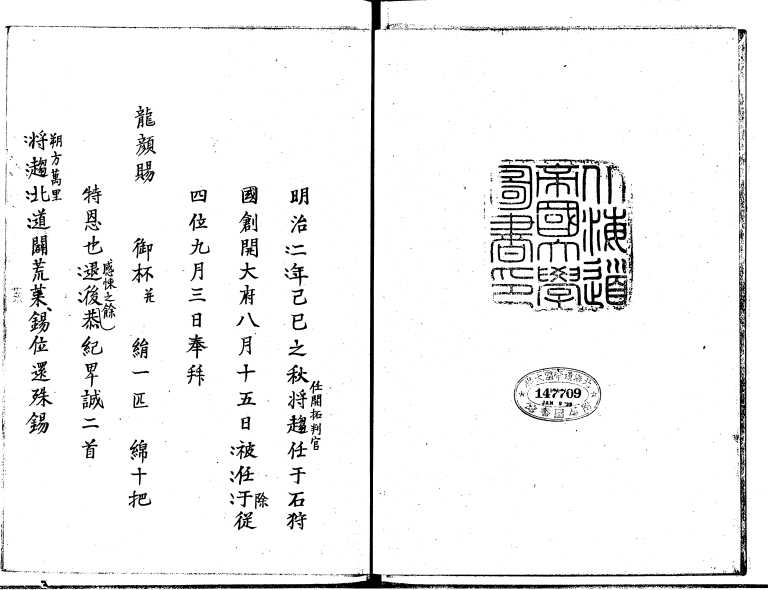 北海道
帝國大學
圖書印
147709
明治二年己巳之秋將趨任于石狩
任開拓判官
國創開大府八月十五日被任于從
除
四位九月三日奉拜
龍顏賜 御杯并 絹一匹 綿十把
特恩也退後恭紀卑誠二首
感悚之餘
將趨北道闢荒菓錫位還殊錫
朔方萬里